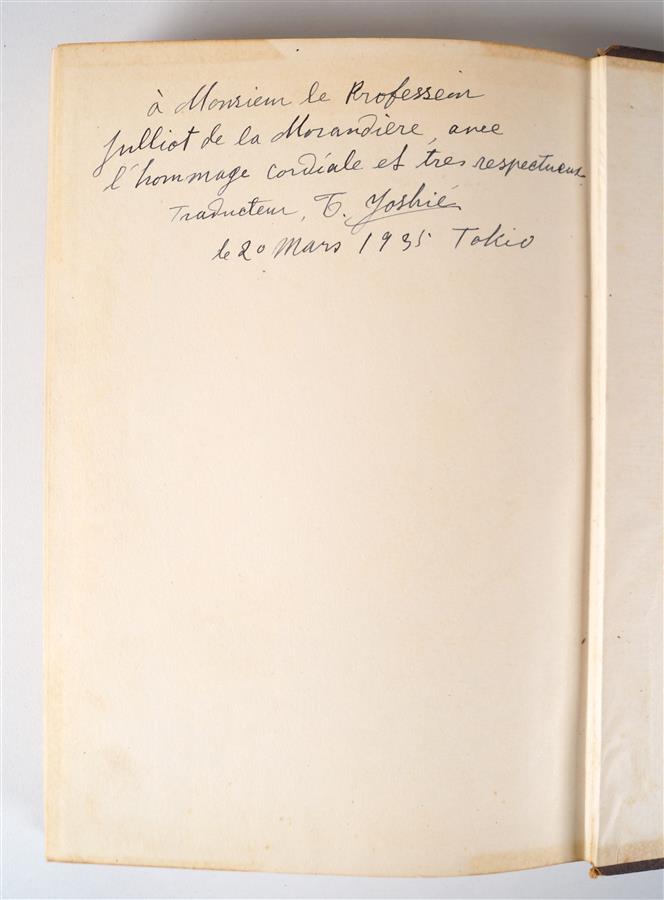 à Monsieur le Professeur
Julliot de la Morandière, avec
l'hommage cordiale et tres respectueux.
Traducteur, T. Yoshié
le 20 Mars 1935 Tokio